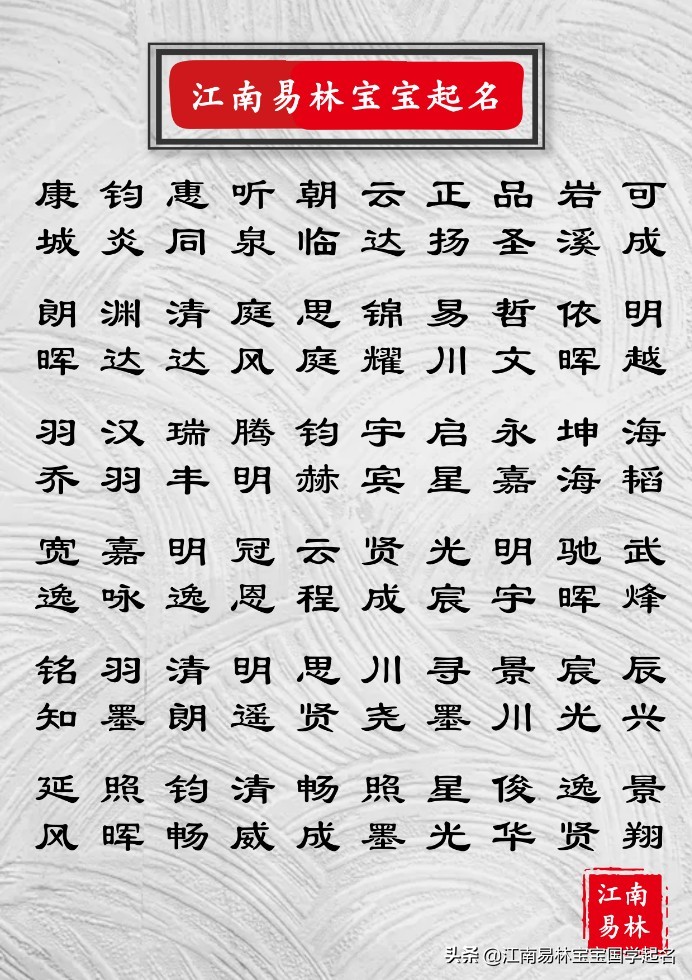 江南易林宝宝起名
康 钧 惠 听 朝 云 正 品 岩 可
城 炎 同 泉 临 达 扬 圣 溪 成
朗 渊 清 庭 思 锦 易 哲 依 明
晖 达 达 风 庭 耀 川 文 晖 越
羽 汉 瑞 腾 钧 宇 启 永 坤 海
乔 羽 丰 明 赫 宾 星 嘉 海 韬
宽 嘉 明 冠 云 贤 光 明 驰 武
逸 咏 逸 恩 程 成 宸 宇 晖 烽
铭 羽 清 明 思 川 寻 景 宸 辰
知 墨 朗 遥 贤 尧 墨 川 光 兴
延 照 钧 清 畅 照 星 俊 逸 景
风 晖 畅 威 成 墨 光 华 贤 翔
江南
易林
头条 @江南易林宝宝国学起名